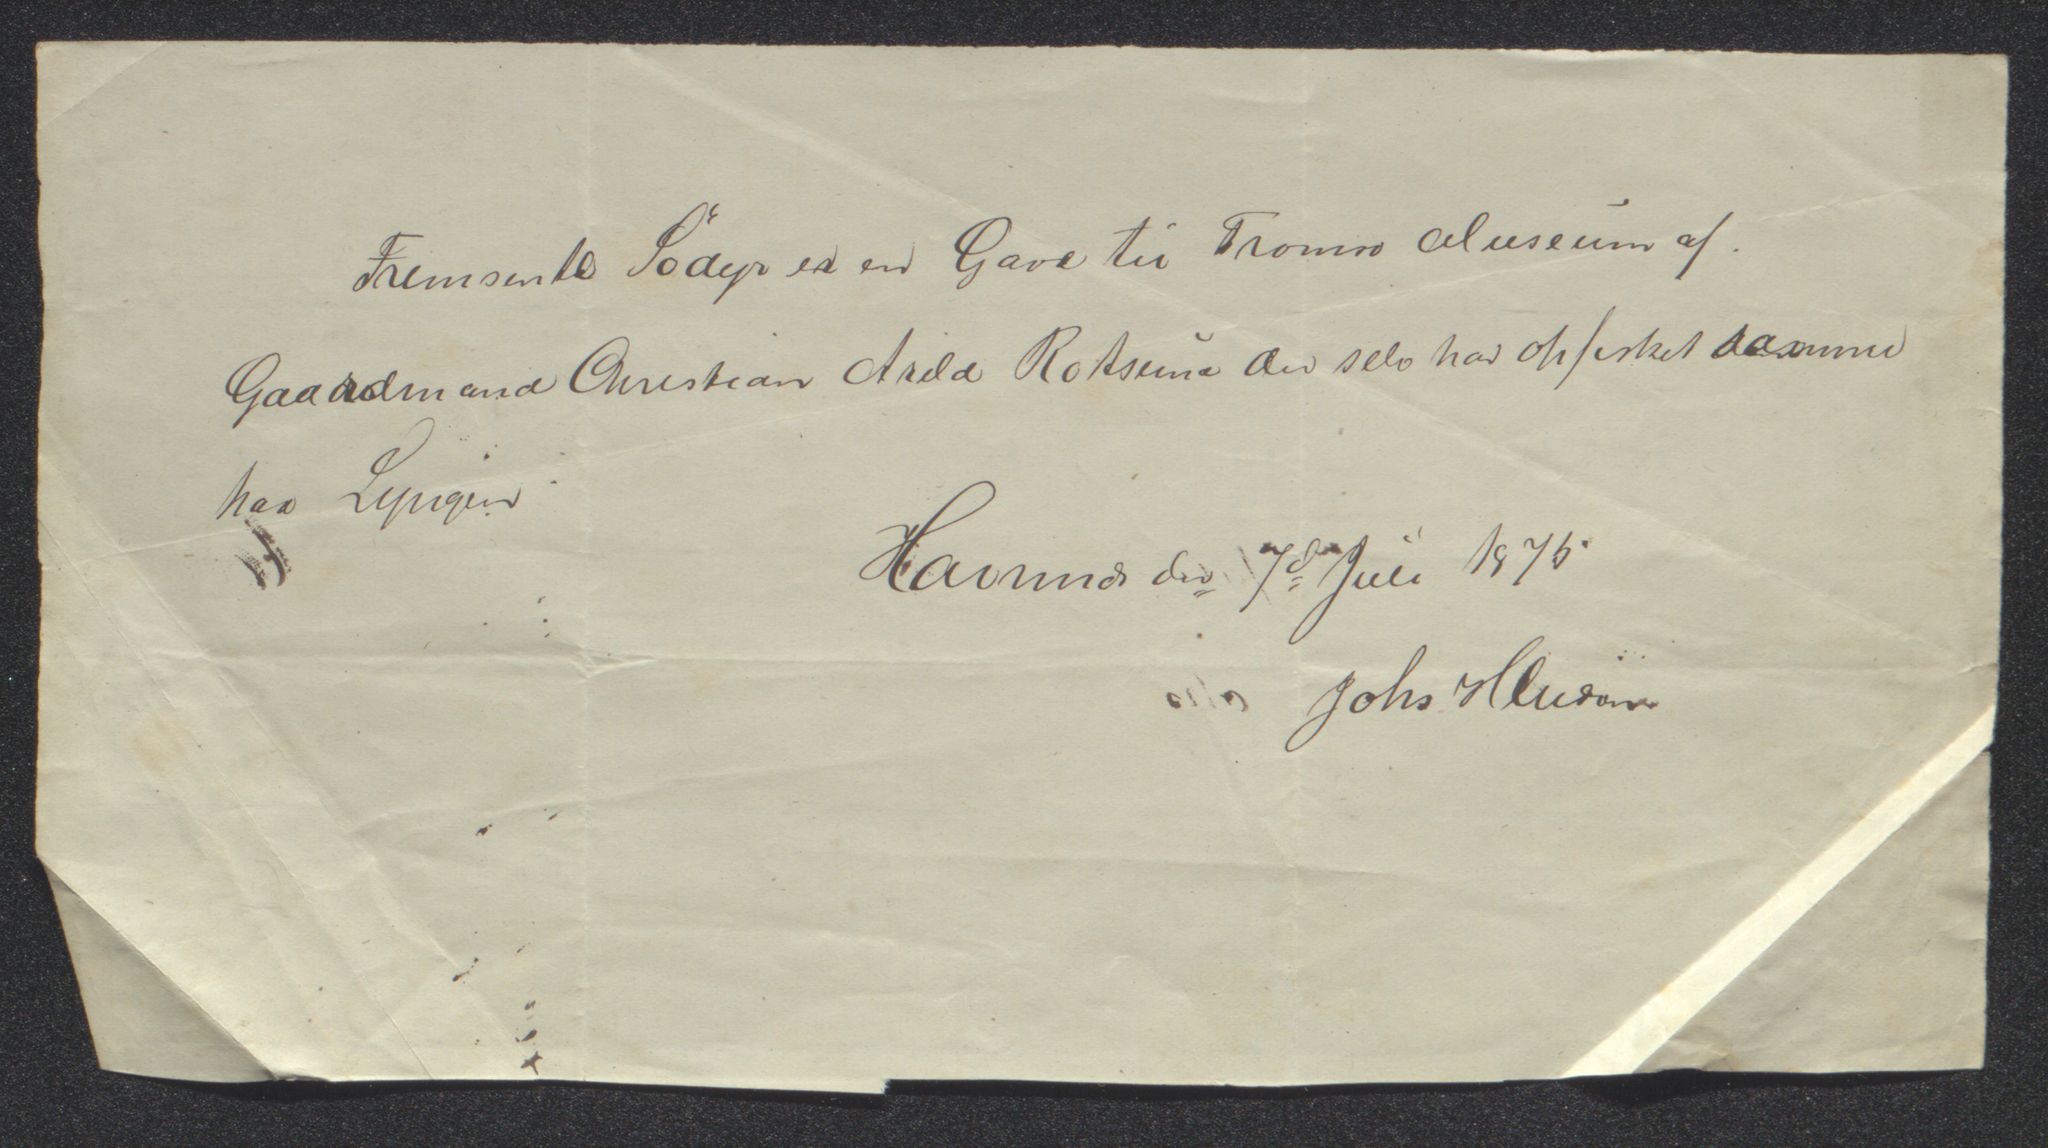 Fremsente Södyr er en Gave til Tromsø Museum af.
Gaardmand Christian Arild Rotsund der selv har opfisket samme
her Lyngen
Havnnes den 7d Juli 1875
Johs